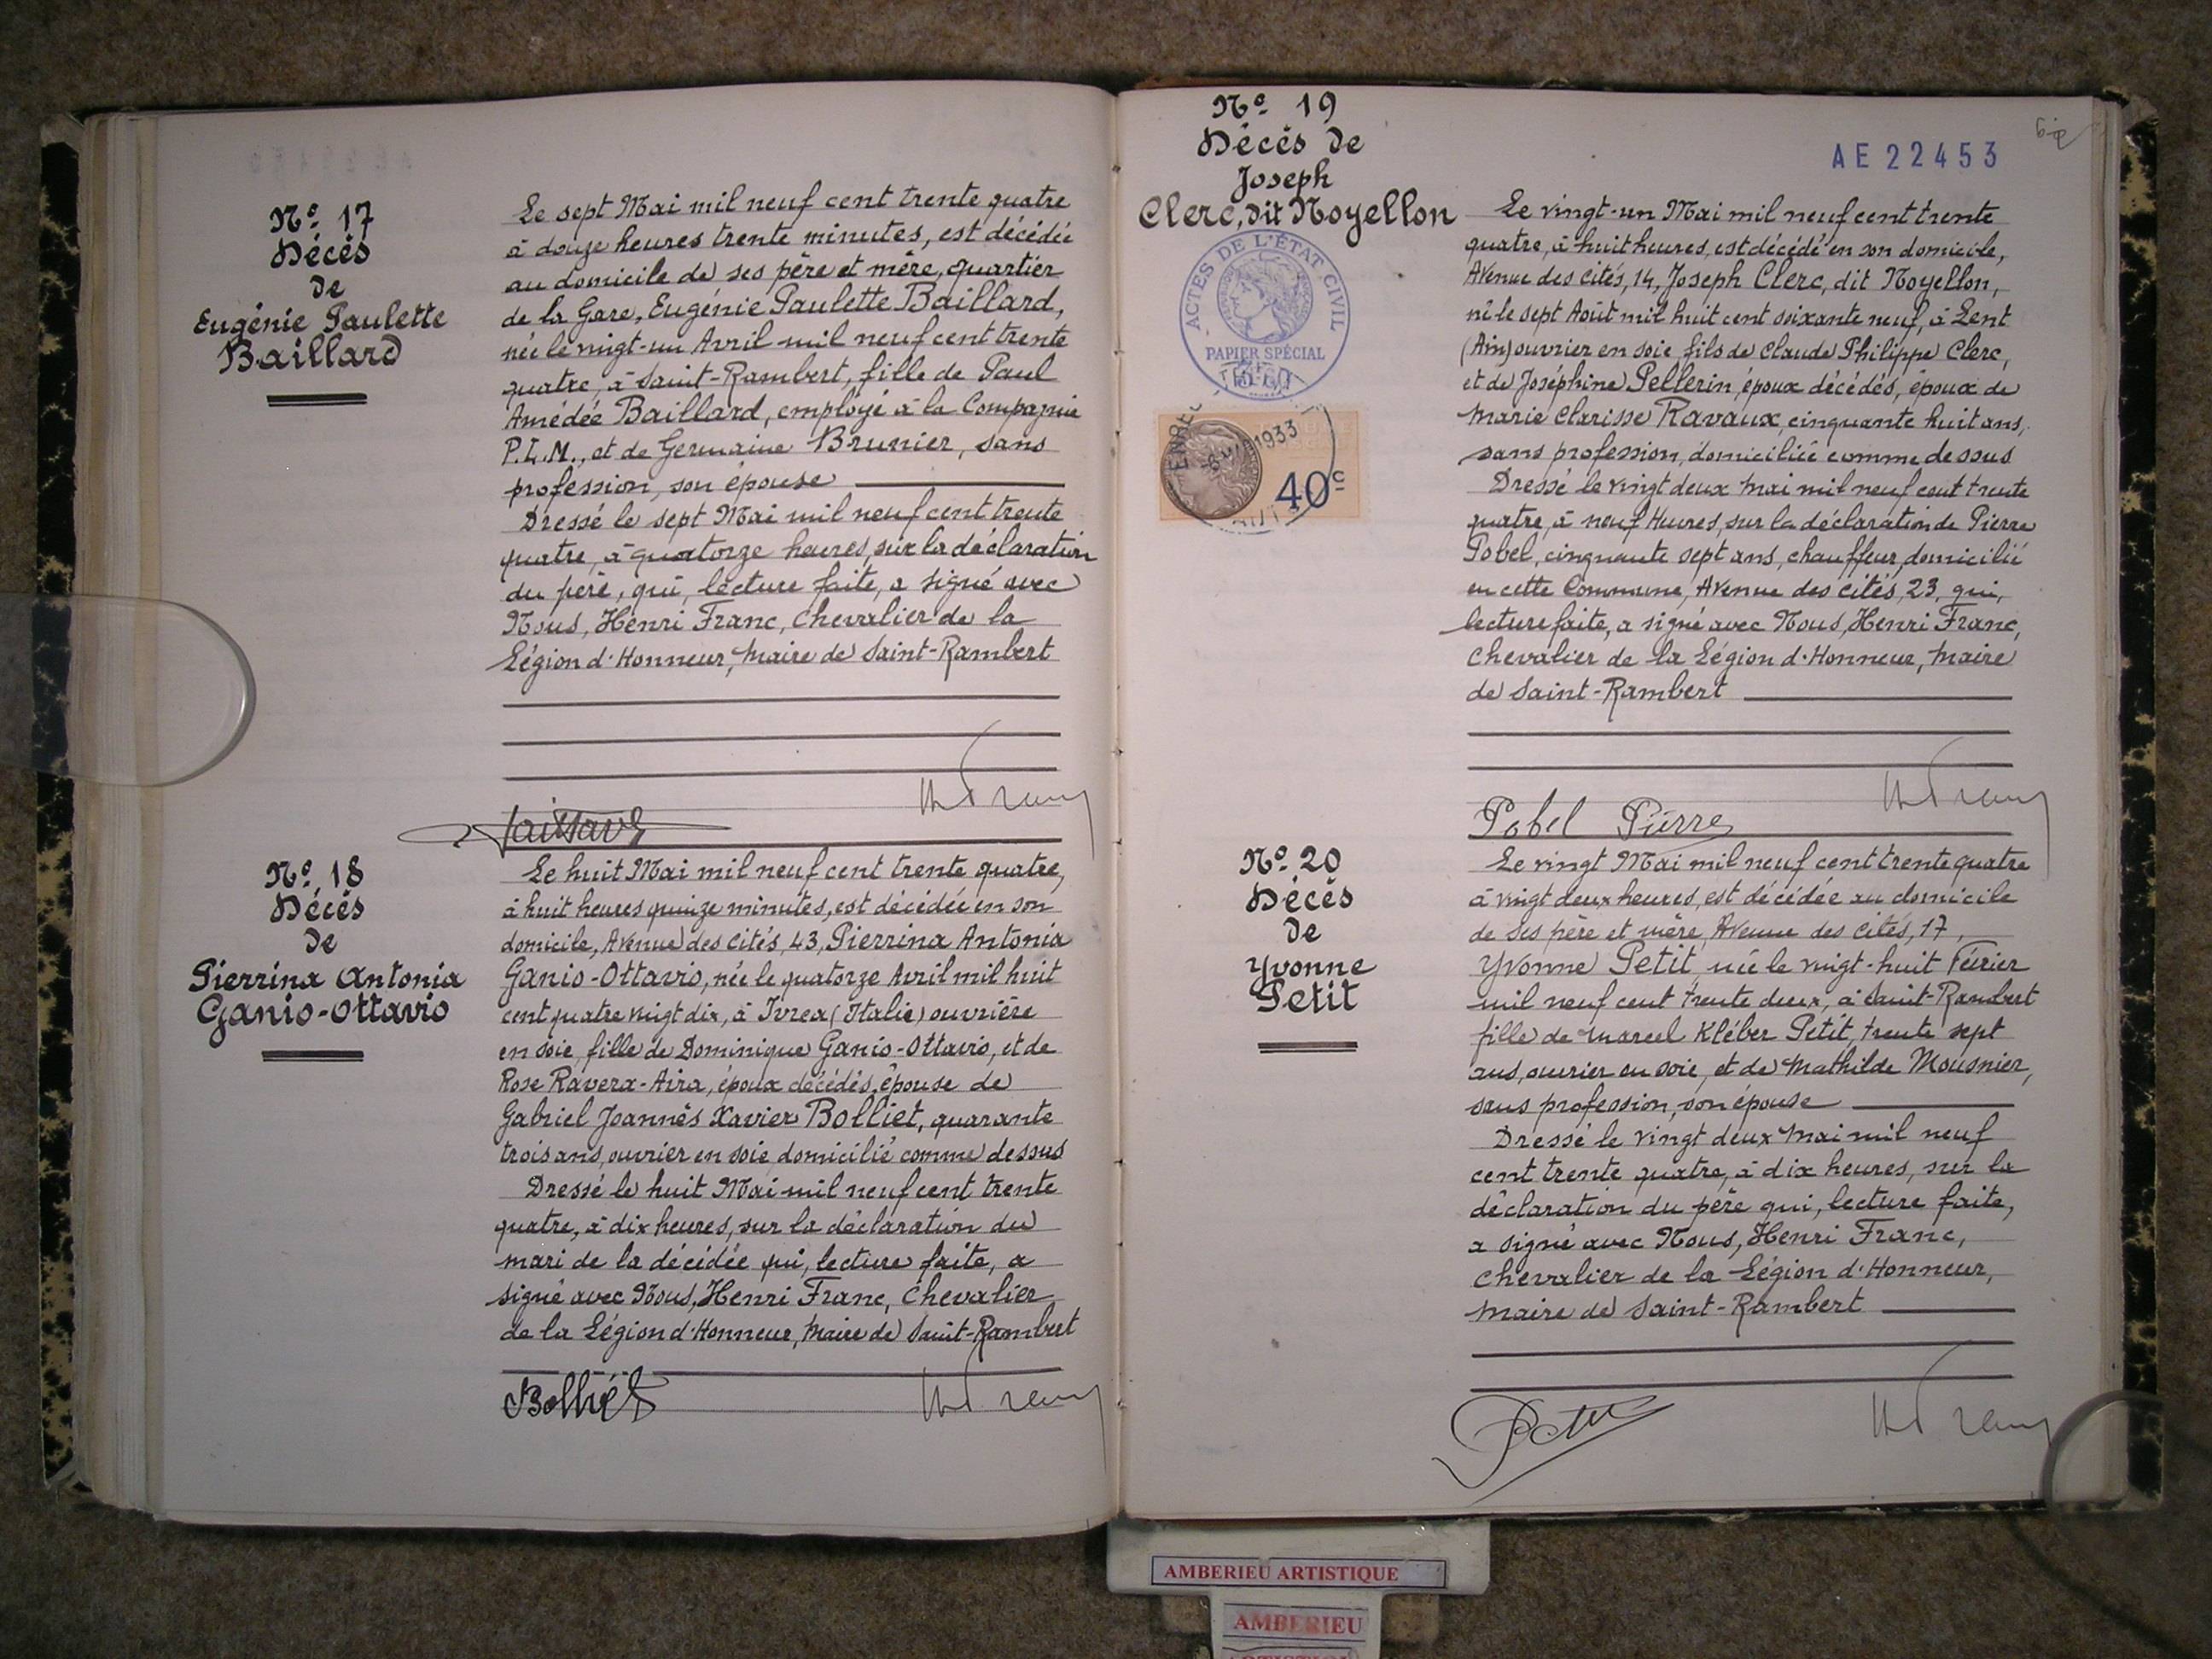 Nº 17
Décès
de
Eugénie Paulette
Baillard
Le sept Mai mil neuf cent trente quatre
à douze heures trente minutes, est décédée
au domicile de ses père et mère, quartier
de la Gare, Eugénie Paulette Baillard,
née le vingt-un Avril mil neuf cent trente
quatre, à Saint-Rambert, fille de Paul
Amédée Baillard, employé à la Compagnie
P.L.M., et de Germaine Brunier, sans
profession, son épouse
Dressé le sept Mai mil neuf cent trente
quatre, à quatorze heures, sur la déclaration
du père, qui, lecture faite, a signé avec
Nous, Henri Franc, Chevalier de la
Légion d'Honneur, Maire de Saint-Rambert
Nº 18
Décès
de
Pierrina Antonia
Ganio-Ottavio
Le huit Mai mil neuf cent trente quatre,
à huit heures quinze minutes, est décédée en son
domicile, Avenue des Cités, 43, Pierrina Antonia
Ganio-Ottavio, née le quatorze Avril mil huit
cent quatre vingt dix, à Ivrea (Italie) ouvrière
en soie, fille de Dominique Ganio-Ottavio, et de
Rose Ravera-Aira, époux décédés, épouse de
Gabriel Joannès Xavier Bolliet, quarante
trois ans, ouvrier en soie, domicilié comme dessus
Dressé le huit Mai mil neuf cent trente
quatre, à dix heures, sur la déclaration du
mari de la décédée qui, lecture faite, a
signé avec Nous, Henri Franc, Chevalier
de la Légion d'Honneur, Maire de Saint-Rambert
Bolliet
Nº 19
Décès de
Joseph
Clerc, dit Noyellon
AE 22453
ACTES DE L'ÉTAT CIVIL
PAPIER SPÉCIAL
1933
40c
Le vingt-un Mai mil neuf cent trente
quatre, à huit heures, est décédé en son domicile,
Avenue des Cités, 14, Joseph Clerc, dit Noyellon,
né le sept Août mil huit cent soixante neuf, à Lent
(Ain) ouvrier en soie, fils de Claude Philippe Clerc,
et de Joséphine Pellerin, époux décédés, époux de
Marie Clarisse Ravaux, cinquante huit ans,
sans profession, domiciliée comme dessus
Dressé le vingt deux Mai mil neuf cent trente
quatre, à neuf Heures, sur la déclaration de Pierre
Pobel, cinquante sept ans, chauffeur, domicilié
en cette Commune, Avenue des Cités, 23, qui,
lecture faite, a signé avec Nous, Henri Franc,
Chevalier de la Légion d'Honneur, Maire
de Saint-Rambert
Pobel Pierre
Nº 20
Décès
de
Yvonne
Petit
Le vingt Mai mil neuf cent trente quatre
à vingt deux heures, est décédée au domicile
de ses père et mère, Avenue des Cités, 17,
Yvonne Petit, née le vingt-huit Février
mil neuf cent trente deux, à Saint-Rambert
fille de Marcel Kléber Petit, trente sept
ans, ouvrier en soie, et de Mathilde Mousnier,
sans profession, son épouse
Dressé le vingt deux Mai mil neuf
cent trente quatre, à dix heures, sur la
déclaration du père qui, lecture faite,
a signé avec Nous, Henri Franc,
Chevalier de la Légion d'Honneur,
Maire de Saint-Rambert
AMBERIEU ARTISTIQUE
AMBERIEU